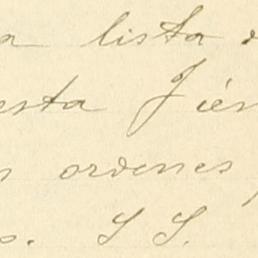 a lista d
esta Tién
s ordenes
s. S S.